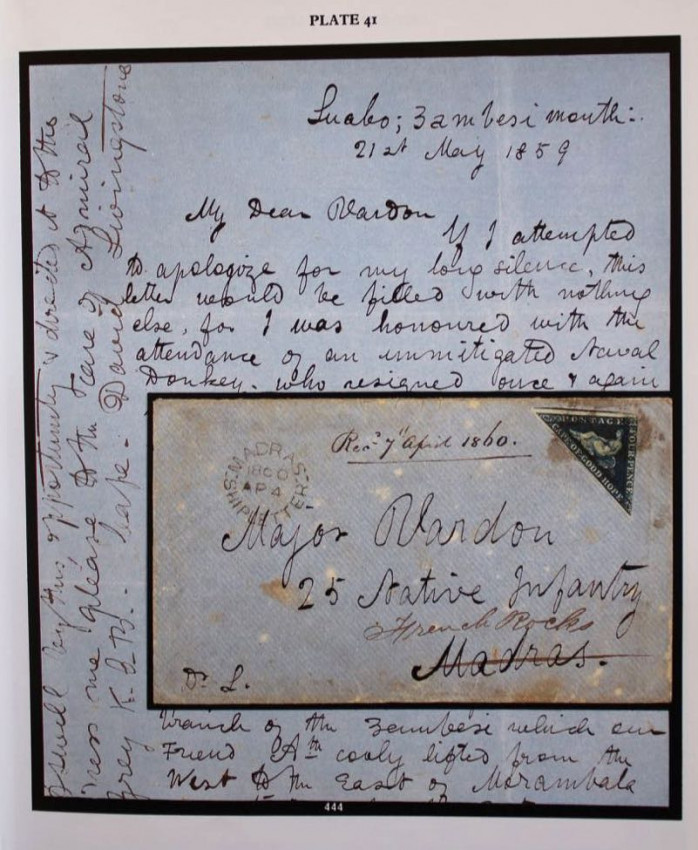 PLATE 41
Luabo; Zambesi mouth:.
21st May 1859
My Dear Vardon
If I attempted
to apologize for my long silence, this
letter would be filled with nothing
else, for I was honoured with the
attendance of an unmitigated Naval
Donkey. who resigned once & again
by this opportunity & directed it to the
me please to the care of Admiral
Grey K.C.B. - Cape - David Livingstone
MADRAS
1860
AP 4
SHIP LETTER
Recd 7th April 1860.
POSTAGE
CAPE OF GOOD HOPE
FOUR PENCE
Major Vardon
25 Native Infantry
French Rocks
Madras.
Dr L.
branch of the Zambesi which our
Friend Ath cooly lifted from the
West to the East of Morambala
444